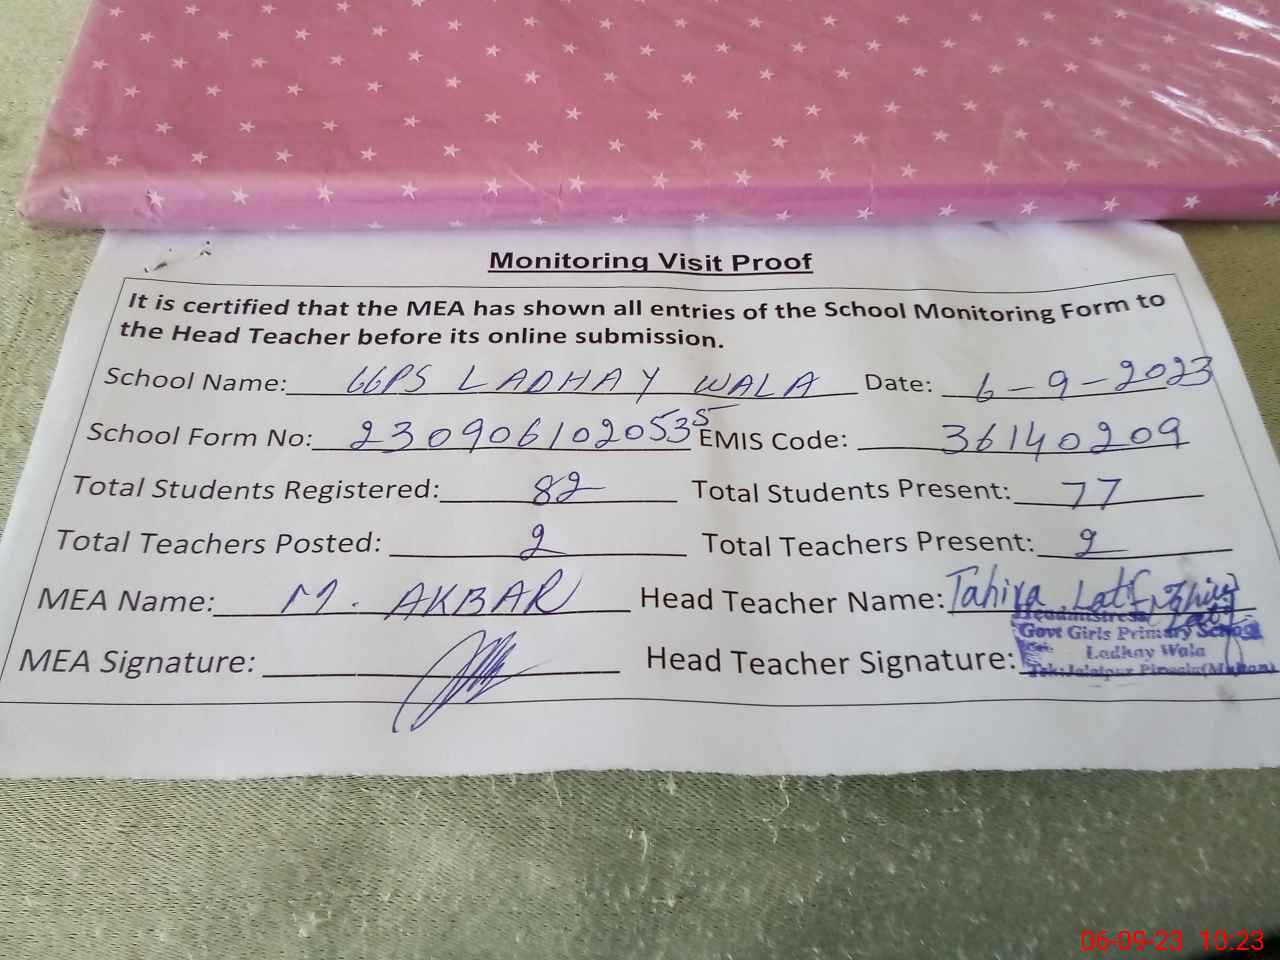 Monitoring Visit Proof
It is certified that the MEA has shown all entries of the School Monitoring Form to
the Head Teacher before its online submission.
School Name: GGPS LADHAY WALA Date: 6-9-2023
School Form No: 2309061020535 EMIS Code: 36140209
Total Students Registered: 82 Total Students Present: 77
Total Teachers Posted: 2 Total Teachers Present: 2
MEA Name: M. AKBAR Head Teacher Name: Tahira Latif
MEA Signature: Head Teacher Signature:
Headmistress
Govt Girls Primary School
Ladhay Wala
Teh: Jalalpur Pirwala (Multan)
06-09-23 10:23